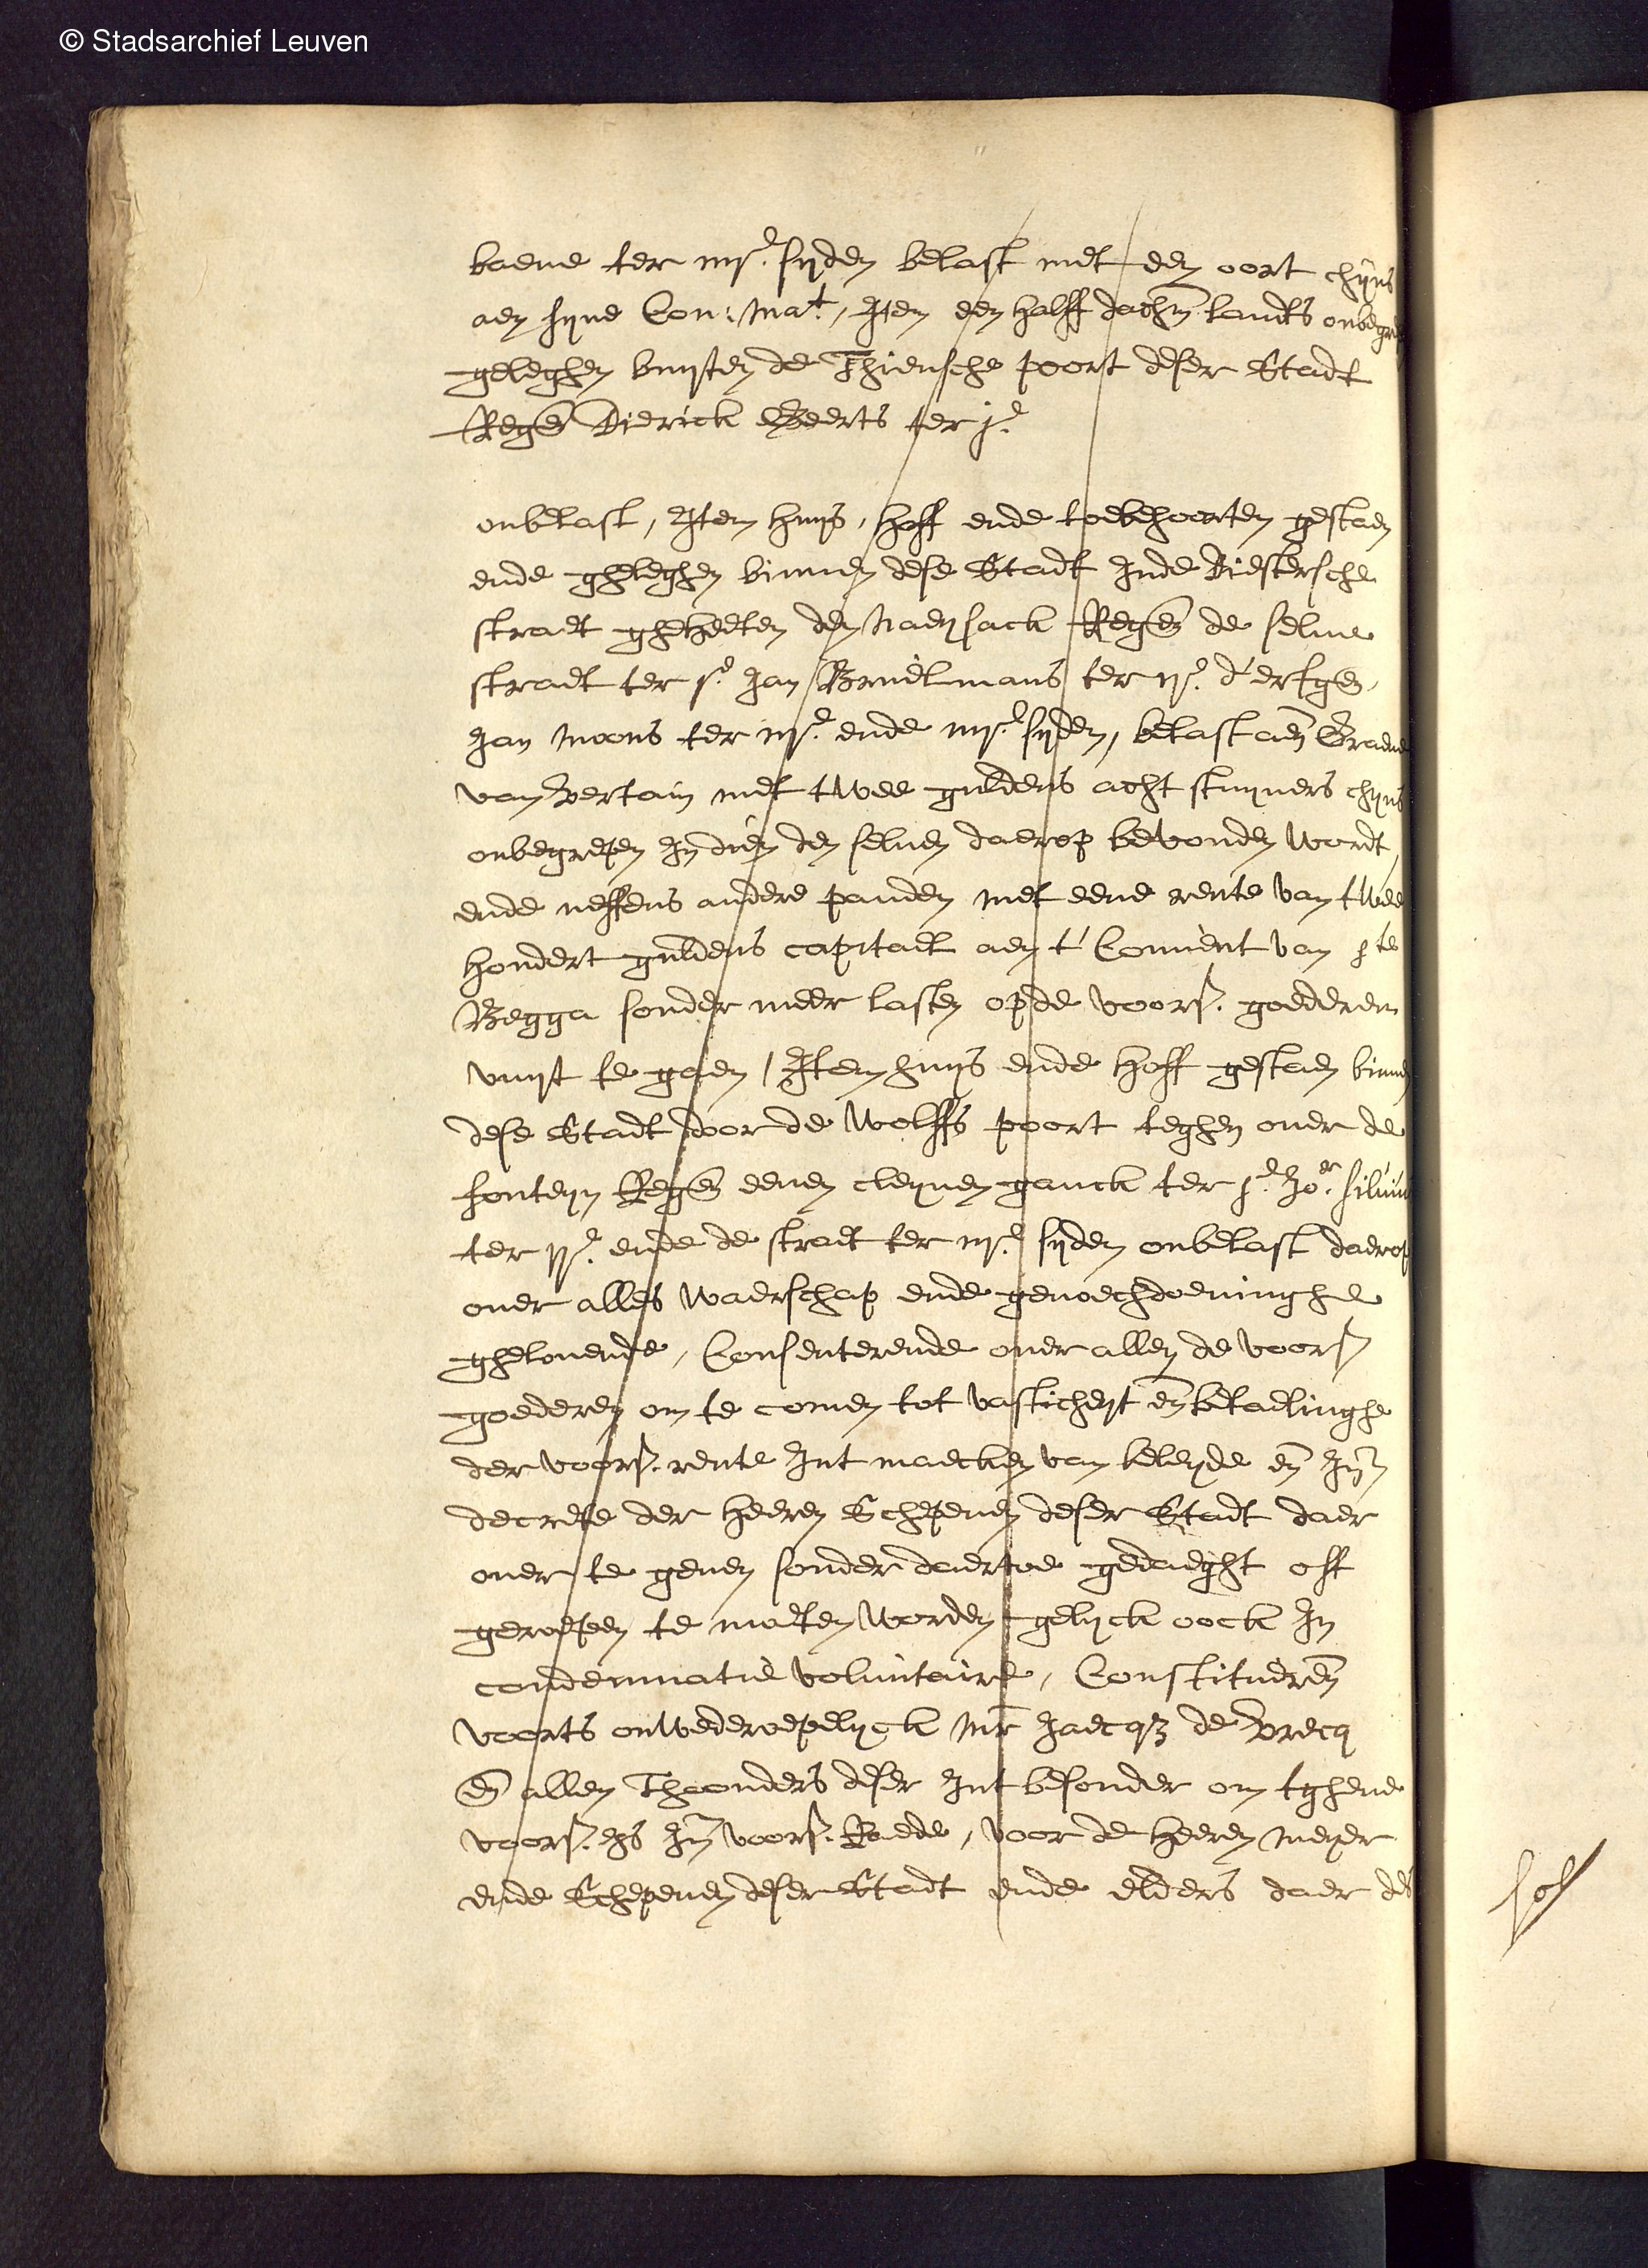 © Stadsarchief Leuven
baene ter iiij.e sijden belast met een oort chijns
aen sijne Con: Mat., Item een halff dachm landts onbegre
geleghen buijten de Thiensche poort deser Stadt
Regen Dierick Geerts ter j.e
onbelast, Item huijs, hoff ende toebehoorten gestaen
ende gheleghen binnen dese Stadt Inde Diestersche
straet gheheeten den Naeijsack Regen de selve
straet ter j.e Jan Bruelmans ter ij.e d'erfgen.
Jan Moons ter iij.e ende iiij.e sijden, belast aen Graeve
van Vertain met twee guldens acht stuijvers chijns
onbegrepen In dien den selven daerop bevonden wordt,
ende neffens andere panden met eene rente van twee
hondert guldens capitael aen t' Convent van ste
Begga sonder meer lasten opde voors. goederen
vuijt te gaen, Item huijs ende hoff gestaen binnen
dese Stadt door de Wolffs poort teghen over de
fonteijn Regen eenen cleijnen ganck ter j.e Jor. Silvi
ter ij.e ende de straet ter iij.e sijden onbelast daerop
over alles waerschap ende genoechdoeninghe
ghelovende, Consenterende over allen de voors
goederen om te comen tot vasticheijt en betaelinghe
der voors. rente Int maecken van beleyde en In
decrete der heeren Schepenen deser Stadt daer
over te geven sonder daertoe gedaeght oft
geroepen te moeten worden gelijck oock In
condemnatie voluntaire, Constitueren
voorts onwederoepelijck Mr Jaecqz de Vrecq
en allen Thoonders deser Int besonder om tghene
voors. Is In voors. Raede, voor de heeren Meyer
ende Schepenen deser Stadt ende elders daer des